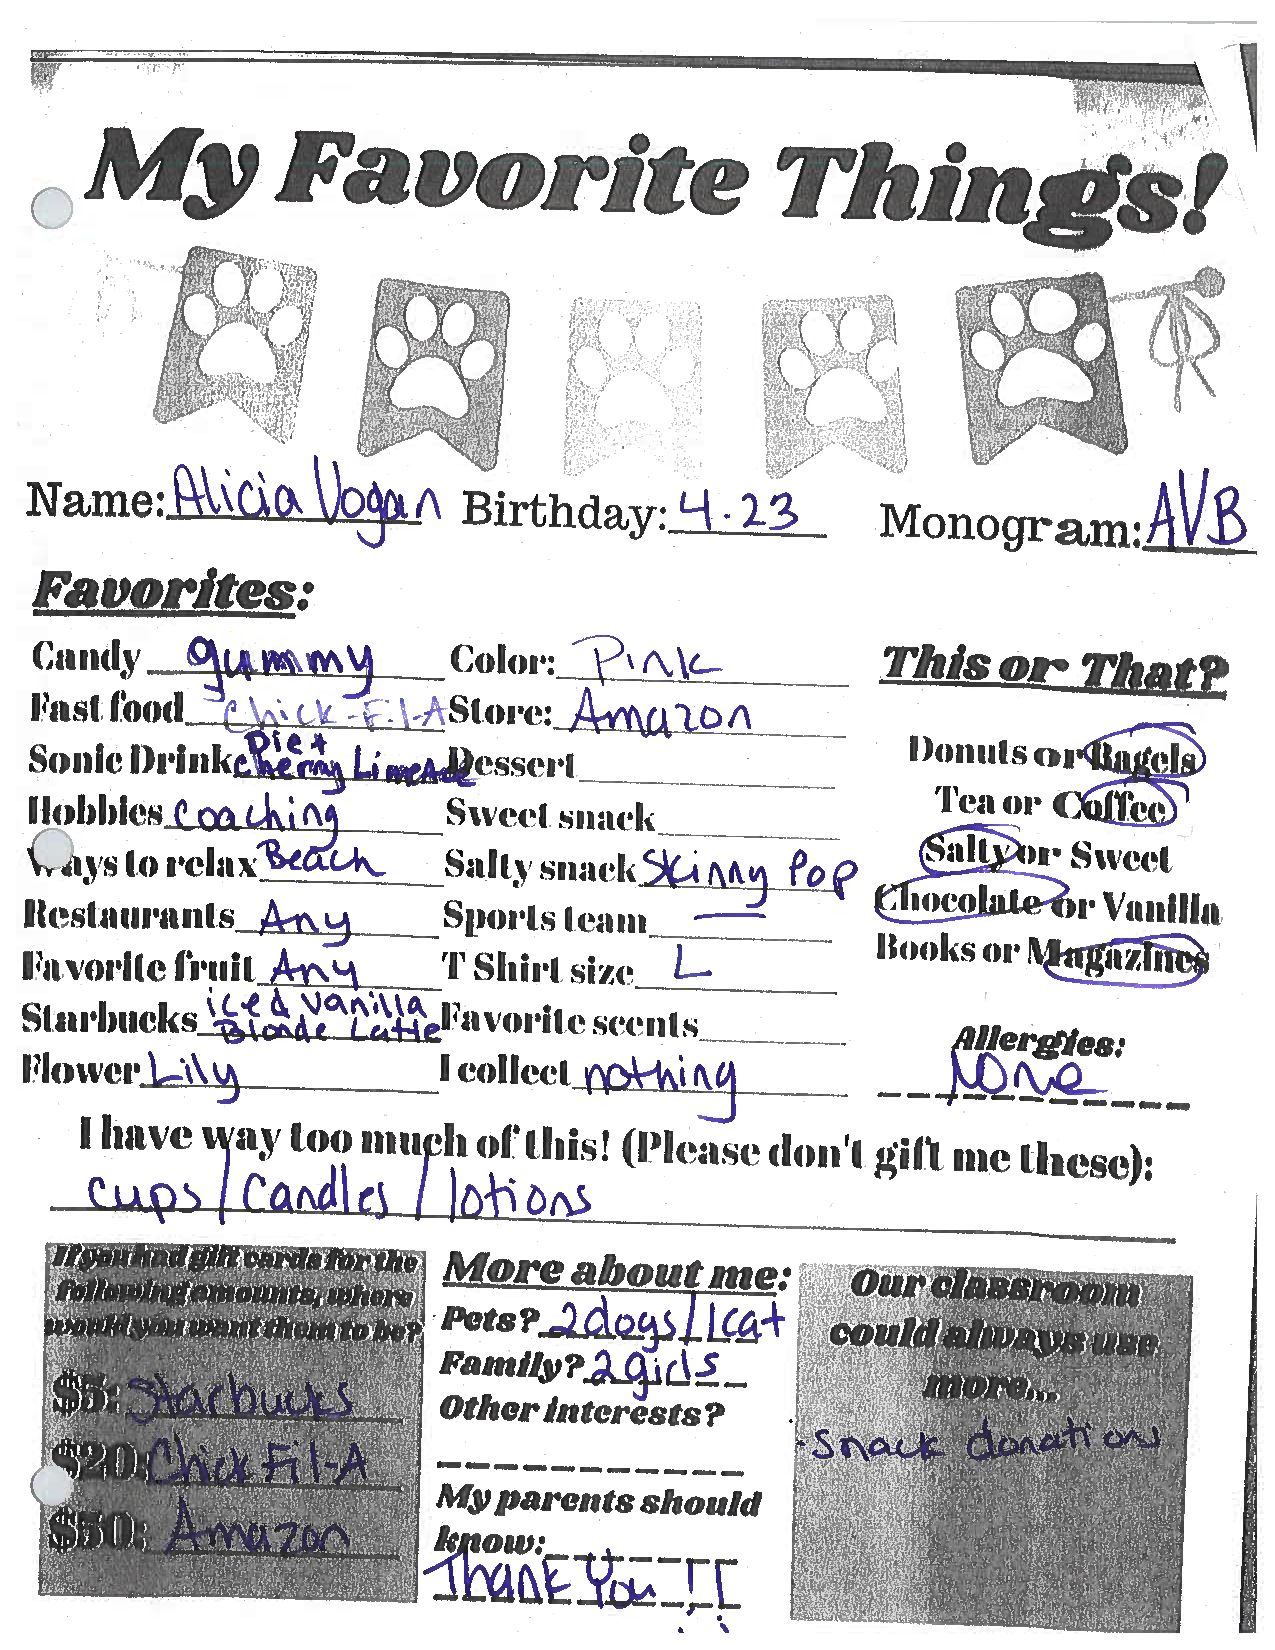 My Favorite Things!
Name: Alicia Vogan Birthday: 4.23 Monogram: AVB
Favorites:
Candy gummy Color: Pink
Fast food Chick-Fil-A Store: Amazon
Sonic Drink Diet Cherry Limeade Dessert
Hobbies coaching Sweet snack
Ways to relax Beach Salty snack Skinny Pop
Restaurants Any Sports team —
Favorite fruit Any T Shirt size L
Starbucks iced vanilla Blonde Latte Favorite scents
Flower Lily I collect nothing
This or That?
Donuts or Bagels
Tea or Coffee
Salty or Sweet
Chocolate or Vanilla
Books or Magazines
Allergies:
None
I have way too much of this! (Please don't gift me these):
cups/candles/lotions
If you had gift cards for the
following amounts, where
would you want them to be?
$5: Starbucks
$20: Chick Fil-A
$50: Amazon
More about me:
Pets? 2 dogs/1 cat
Family? 2 girls
Other interests?
My parents should
know:
Thank You!!
Our classroom
could always use
more...
- snack donations